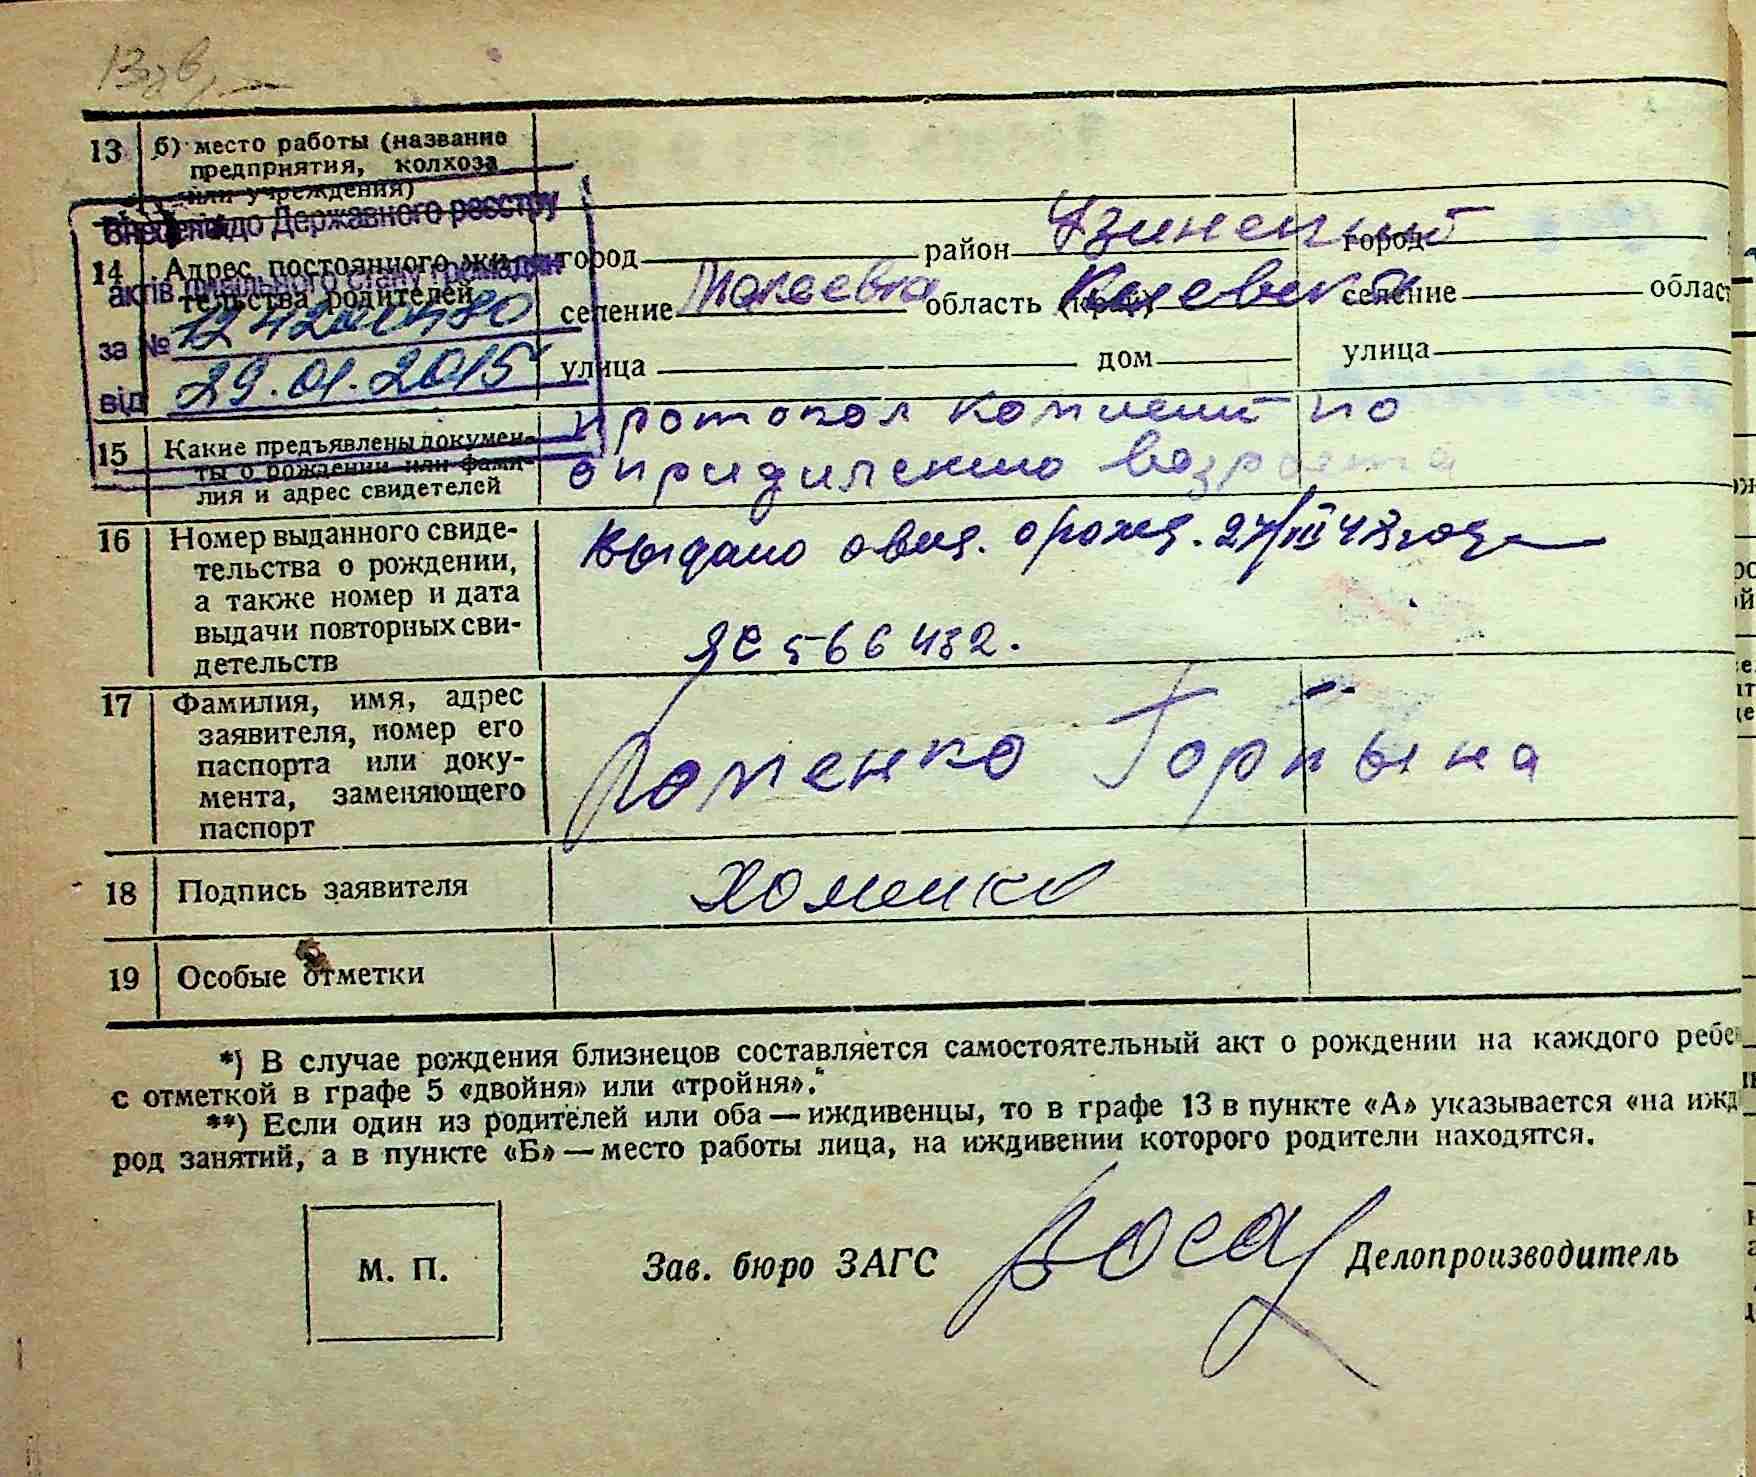 13 б) место работы (название
предприятия, колхоза
или учреждения)
Внесено до Державного реєстру
актів цивільного стану громадян
за №
від 29.01.2015
14 Адрес постоянного жи-
тельства родителей
город район Узинский город
селение Макеевка область (край) Киевская селение област
улица дом улица
15 Какие предъявлены докумен-
ты о рождении или фами-
лия и адрес свидетелей
протокол комисии по
опридилению возраста
16 Номер выданного свиде-
тельства о рождении,
а также номер и дата
выдачи повторных сви-
детельств
Выдано овид. о рожд. 27/III 48 года
ЯС 566432.
17 Фамилия, имя, адрес
заявителя, номер его
паспорта или доку-
мента, заменяющего
паспорт
Хоменко Горпына
18 Подпись заявителя Хоменко
19 Особые отметки
*) В случае рождения близнецов составляется самостоятельный акт о рождении на каждого ребе
с отметкой в графе 5 «двойня» или «тройня».
**) Если один из родителей или оба — иждивенцы, то в графе 13 в пункте «А» указывается «на ижд
род занятий, а в пункте «Б» — место работы лица, на иждивении которого родители находятся.
М. П. Зав. бюро ЗАГС Делопроизводитель